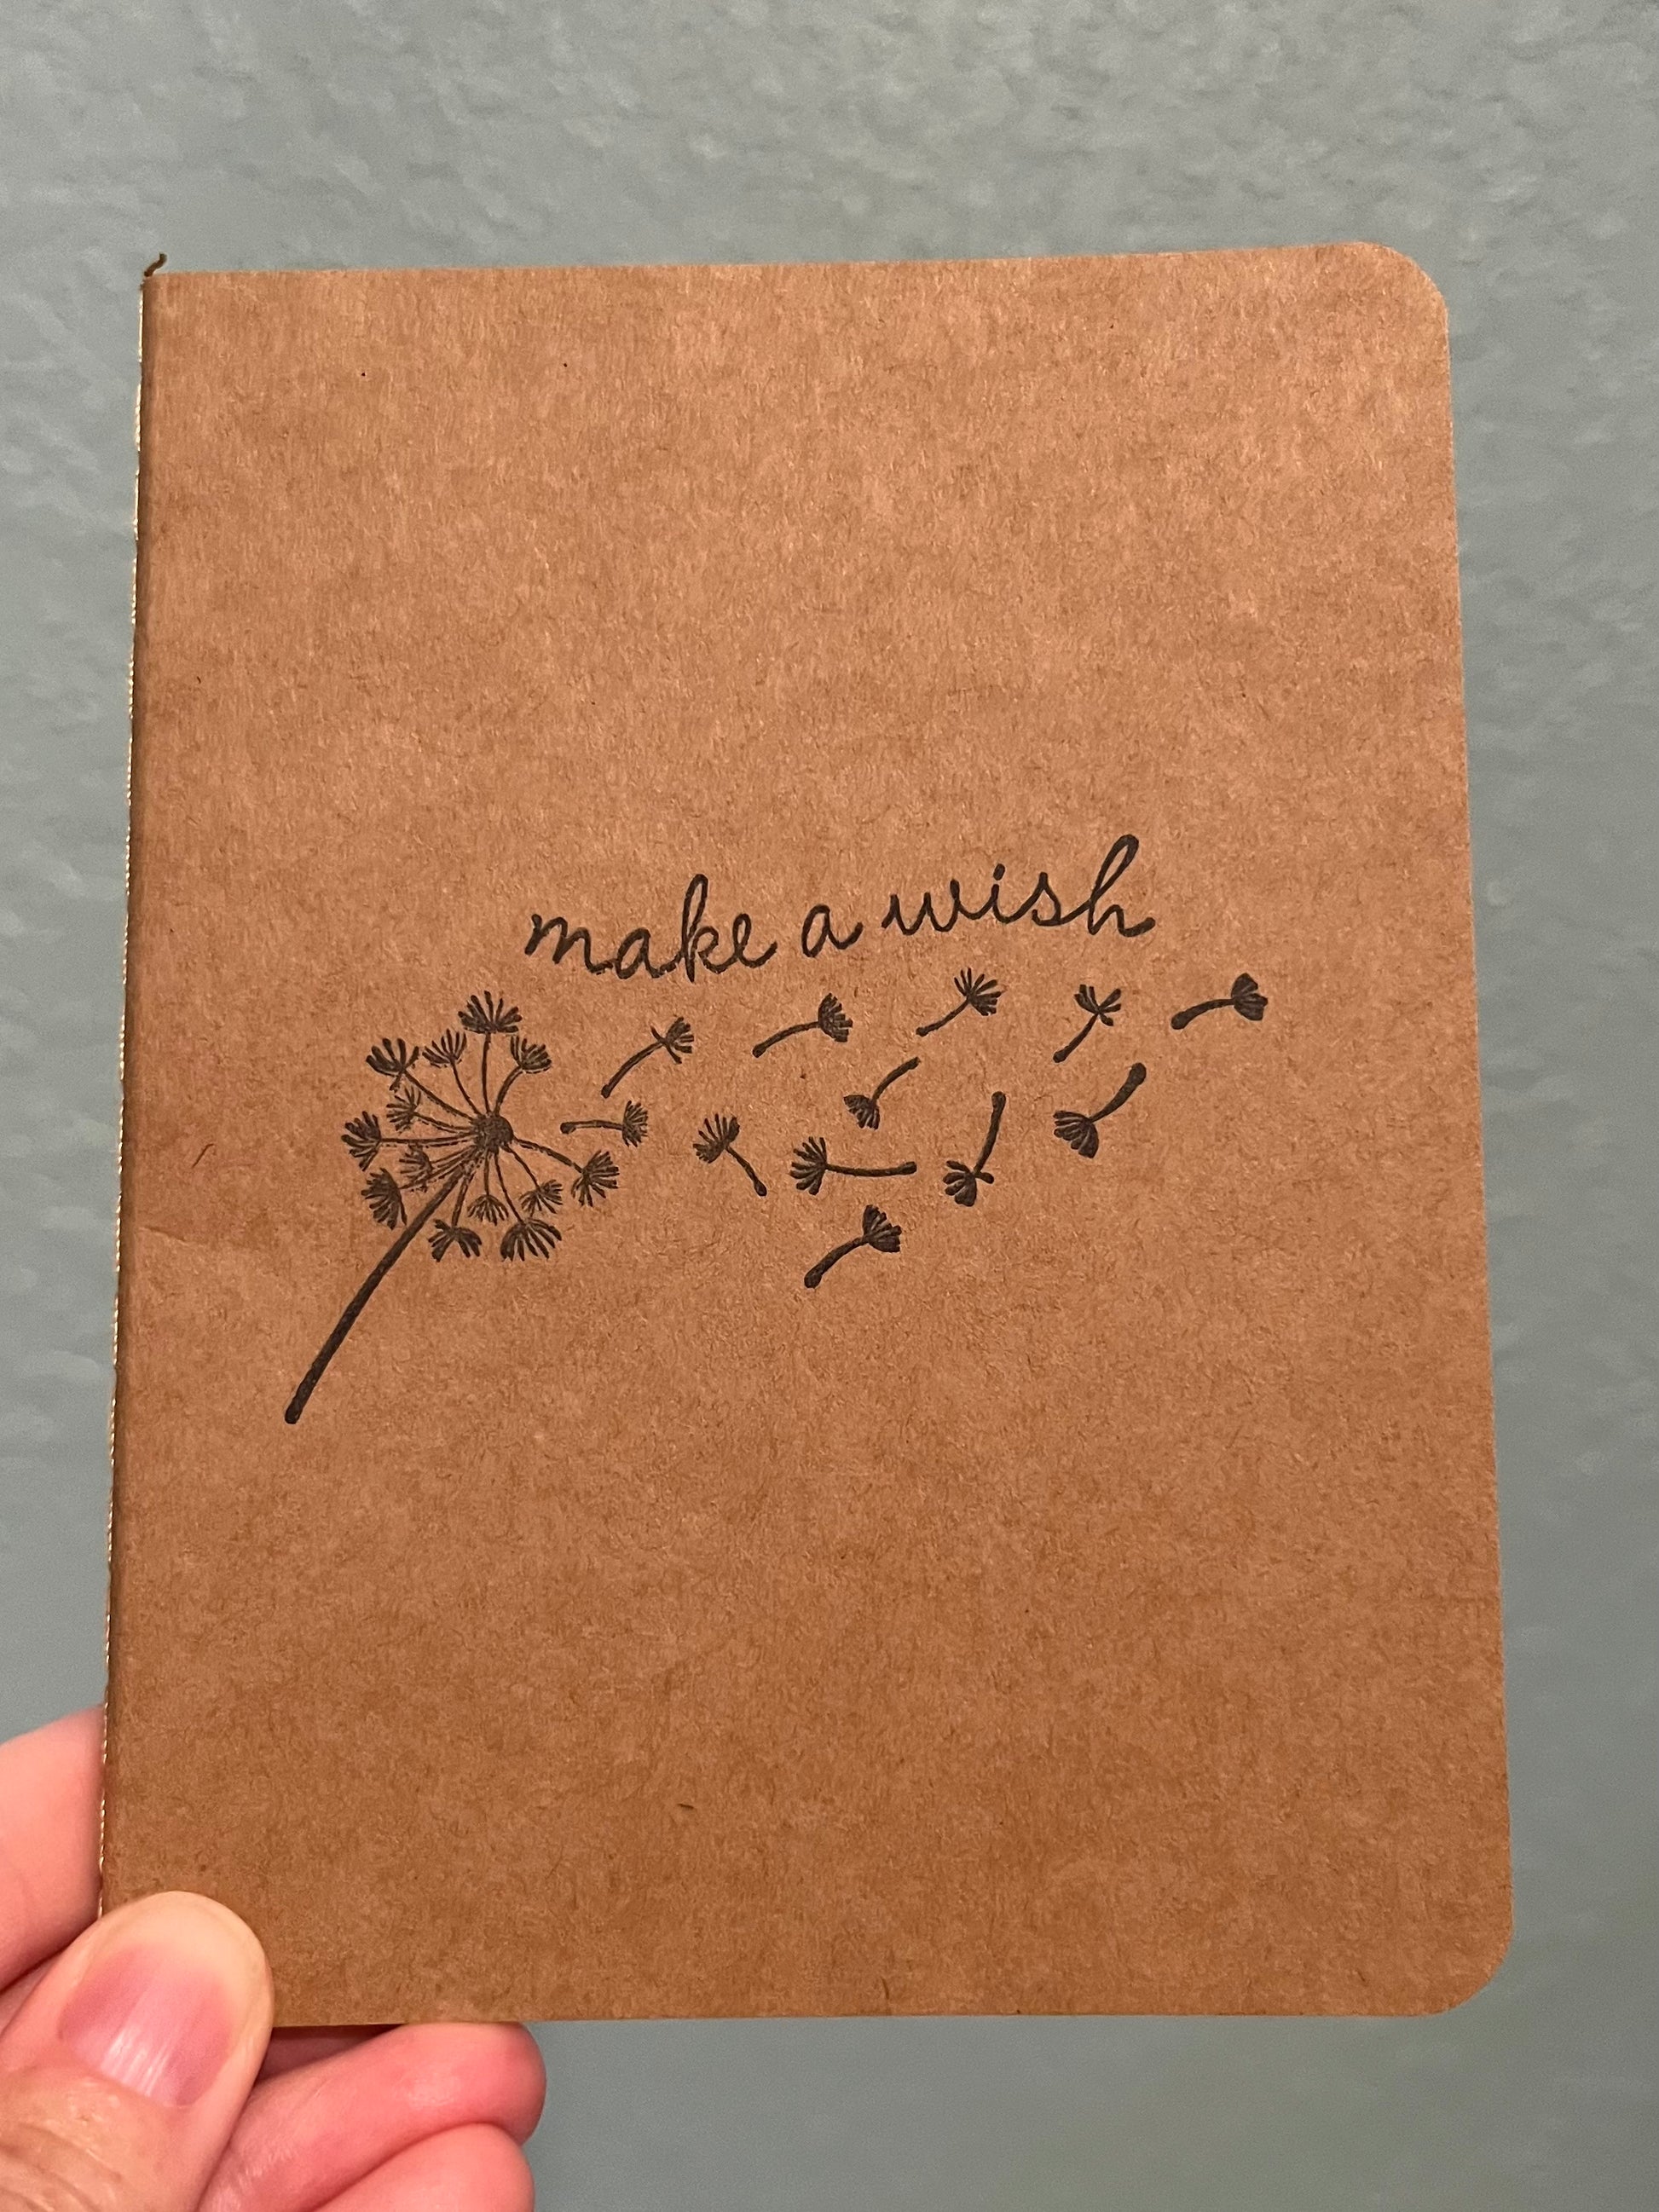 make a wish